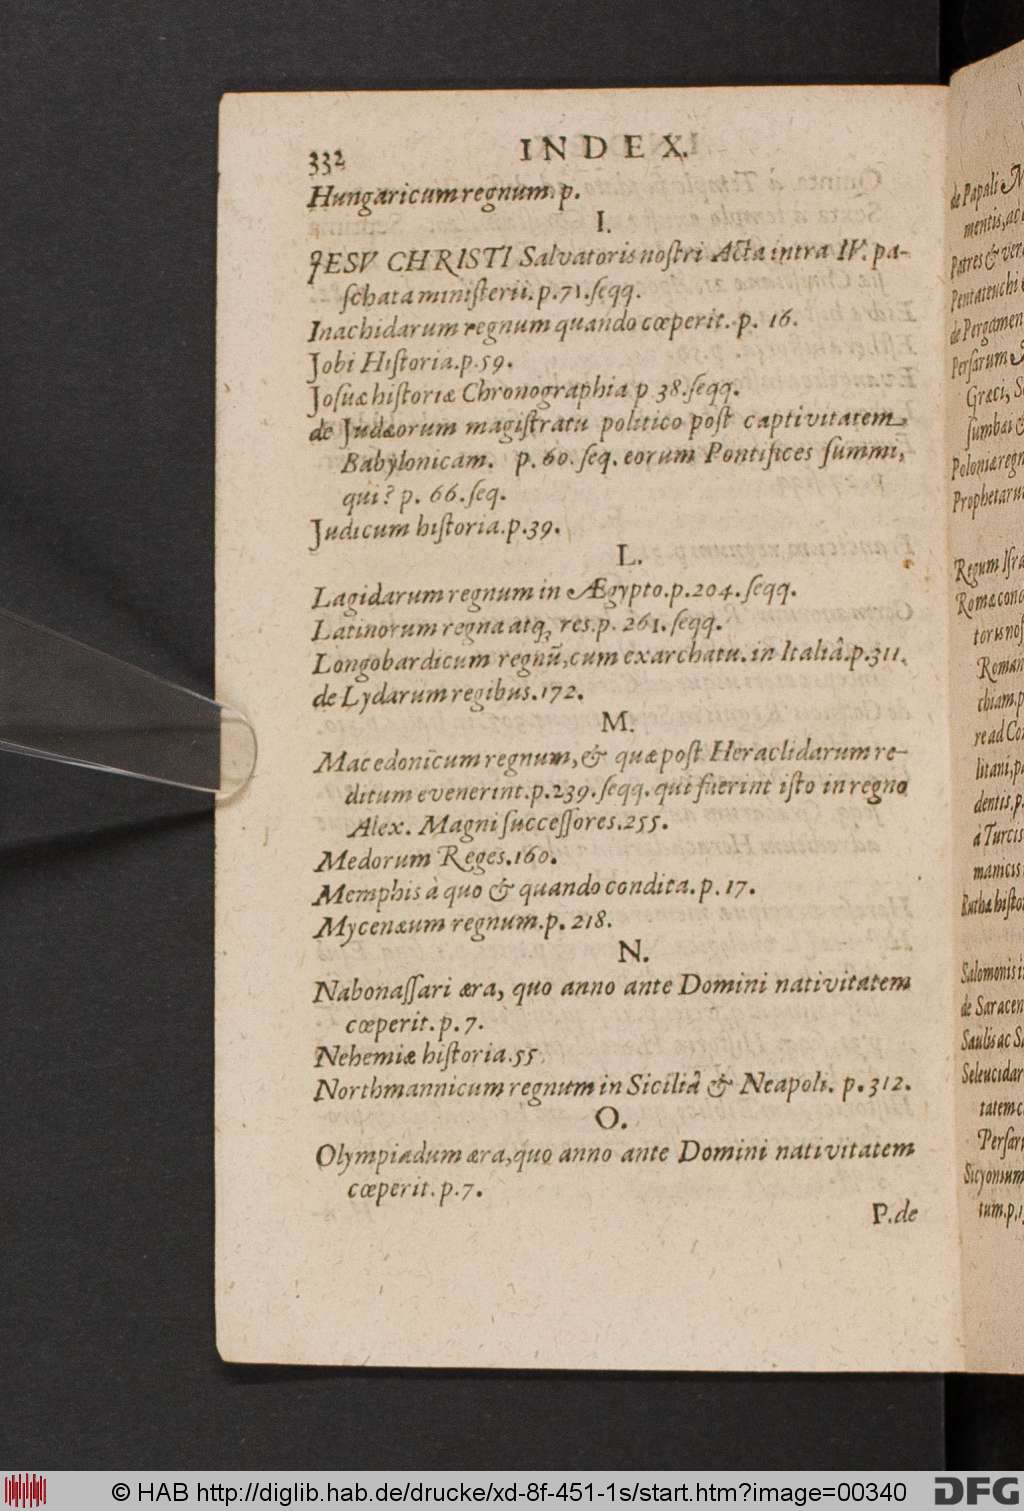 332
INDEX.
Hungaricum regnum. p.
I.
JESV CHRISTI Salvatoris nostri Acta intra IV. pa-
schata ministerii. p. 71. seqq.
Inachidarum regnum quando cœperit. p. 16.
Jobi Historia. p. 59.
Josuæ historiæ Chronographia p 38. seqq.
de Judæorum magistratu politico post captivitatem
Babylonicam. p. 60. seq. eorum Pontifices summi,
qui? p. 66. seq.
Judicum historia. p. 39.
L.
Lagidarum regnum in Ægypto. p. 204. seqq.
Latinorum regna atq; res. p. 261. seqq.
Longobardicum regnũ, cum exarchatu. in Italiâ. p. 311.
de Lydarum regibus. 172.
M.
Macedonicum regnum, & quæ post Heraclidarum re-
ditum evenerint. p. 239. seqq. qui fuerint isto in regno
Alex. Magni successores. 255.
Medorum Reges. 160.
Memphis à quo & quando condita. p. 17.
Mycenæum regnum. p. 218.
N.
Nabonassari æra, quo anno ante Domini nativitatem
cœperit. p. 7.
Nehemiæ historia. 55
Northmannicum regnum in Siciliâ & Neapoli. p. 312.
O.
Olympiadum æra, quo anno ante Domini nativitatem
cœperit. p. 7.
P. de
de Papali
mentis,
Patres &
Pentateuchi
de Pergamen
Persarum
Græci,
Poloniæ regn
Prophetaru
Regum Isra
Roma cond
Roman
chiam. p
re ad Con
litani, p
dentis, p.
à Turcis
manicis
Ruthæ histo
Salomonis
de Saracen
Saulis ac
Seleucidar
tatem
Persar
Sicyonium
tum. p.
© HAB http://diglib.hab.de/drucke/xd-8f-451-1s/start.htm?image=00340
DFG